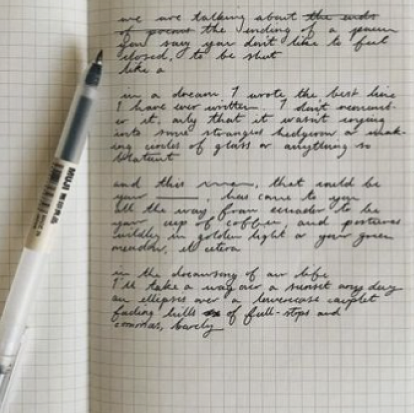 we are talking about the ends
of poems the ending of a poem
you say you don't like to feel
closed, to be shut
like a
in a dream I wrote the best line
I have ever written. I don't remember
it, only that it wasn't
into some strangers or
ing circles of glass or anything so
blatant
and this, that could be
your, has come to you
all the way from ecuador to be
your cup of coffee, and
wildly in golden light or your green
meadow, et cetera
in the of our life
I'll take a over a sunset any day
an ellipses over a lowercase couplet
fading hills of full-stops and
commas, barely
MUJI 無印良品